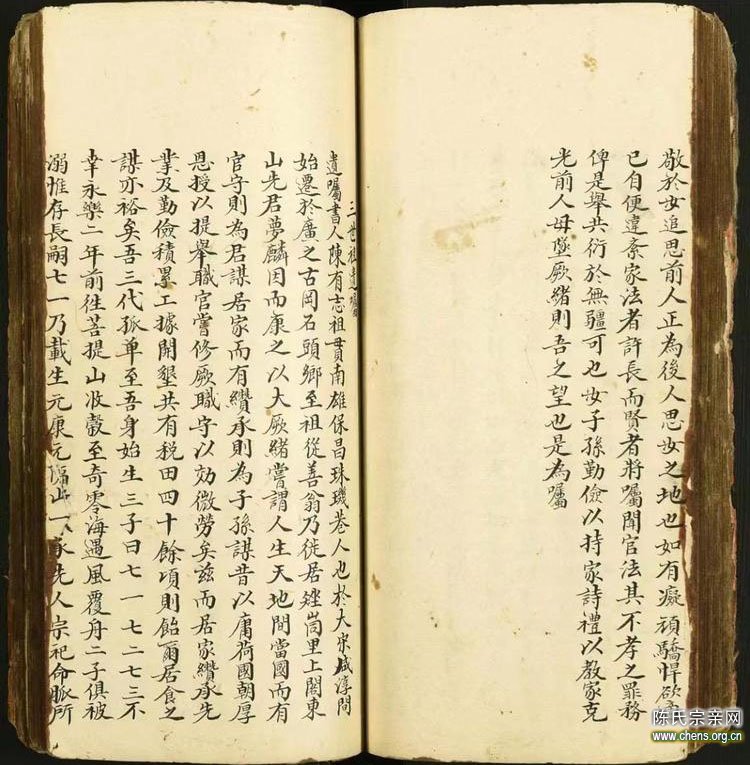 敬於女追思前人正為後人思女之地也如有癡頑驕悍欲
已自便違紊家法者許長而賢者將囑聞官法其不孝之罪務
俾是舉共衍於無疆可也女子孫勤儉以持家詩禮以教家克
光前人毋墜厥緒則吾之望也是為囑
三世祖遺囑
遺囑書人陳有志祖貫南雄保昌珠璣巷人也於大宋咸淳間
始遷於廣之古岡石頭鄉至祖從善翁乃徙居矬峝里上閣東
山先君夢麟因而康之以大厥緒嘗謂人生天地間當國而有
官守則為君謀居家而有纘承則為子孫謀昔以庸荷國朝厚
恩授以提舉職官嘗修厥職守以効微勞矣茲而居家纘承先
業及勤儉積累工據開墾共有稅田四十餘項則飴爾居食之
謀亦裕矣吾三代孤单至吾身始生三子曰七一七二七三不
幸永樂二年前徃菩提山收穀至奇零海遇風覆舟二子俱被
溺惟存長嗣七一乃載生元康元 一 承先人宗祀命脈所
陈氏宗亲网
www.chens.org.cn